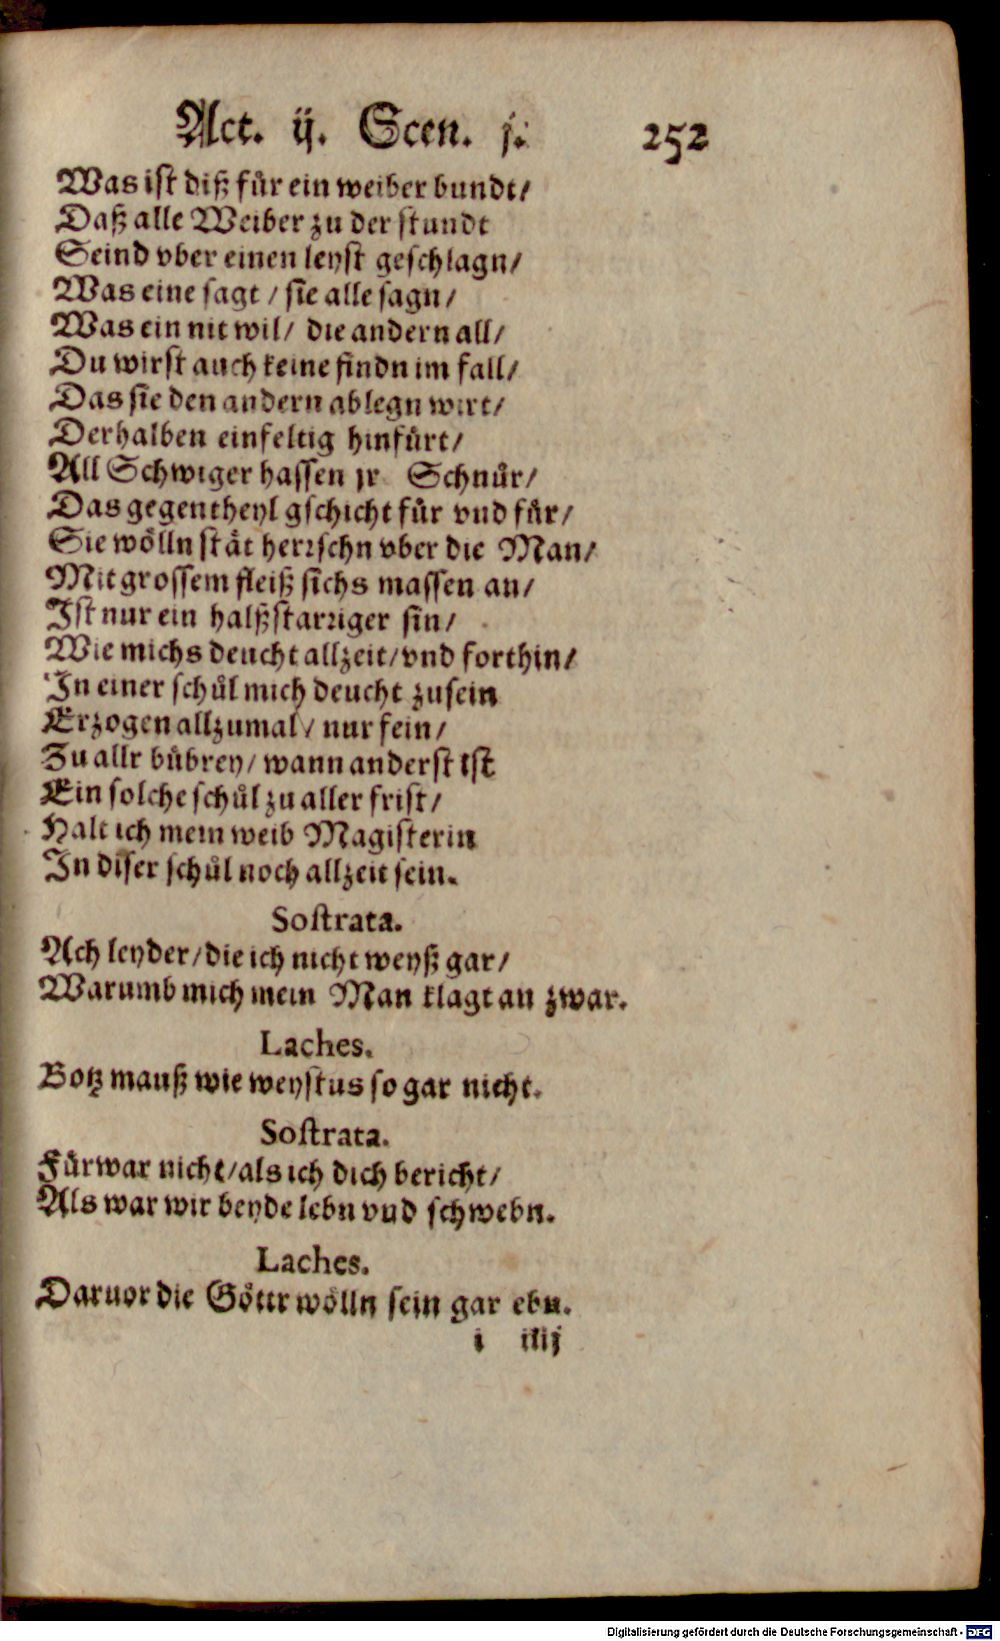 Act. ij. Scen. j. 252
Was ist diß fuͤr ein weiber bundt/
Daß alle Weiber zu der stundt
Seind vber einen leyst geschlagn/
Was eine sagt / sie alle sagn/
Was ein nit wil/ die andern all/
Du wirst auch keine findn im fall/
Das sie den andern ablegn wirt/
Derhalben einfeltig hinfuͤrt/
All Schwiger hassen jr Schnuͤr/
Das gegentheyl gschicht fuͤr vnd fuͤr/
Sie woͤlln staͤt herꝛschn vber die Man/
Mit grossem fleiß sichs massen an/
Ist nur ein halßstarꝛiger sin/
Wie michs deucht allzeit/vnd forthin/
In einer schuͦl mich deucht zusein
Erzogen allzumal/ nur fein/
Zu allr buͤbrey/ wann anderst ist
Ein solche schuͦl zu aller frist/
Halt ich mein weib Magisterin
In diser schuͦl noch allzeit sein.
Sostrata.
Ach leyder/die ich nicht weyß gar/
Warumb mich mein Man klagt an zwar.
Laches.
Botz mauß wie weystus so gar nicht.
Sostrata.
Fuͤrwar nicht/als ich dich bericht/
Als war wir beyde lebn vnd schwebn.
Laches.
Daruor die Goͤttr woͤlln sein gar ebn.
i iiij
Digitalisierung gefördert durch die Deutsche Forschungsgemeinschaft - DFG